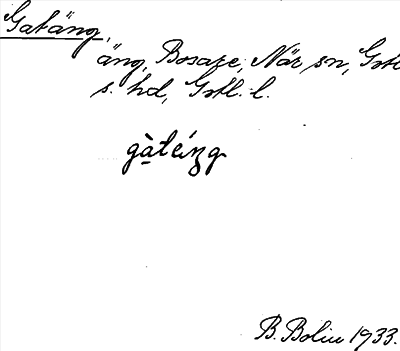 Gatäng,
äng, Bosarve, När sn, Gotl
s. hd, Gotl. l.
gàténg
B. Bolin 1933.